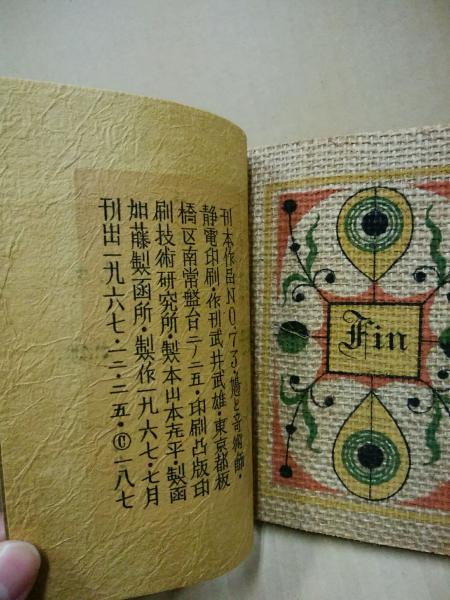 刊本作品NO.73・鳩と奇術師・
静電印刷・作刊武井武雄・東京都板
橋区南常盤台二ノ二五・印刷凸版印
刷技術研究所・製本山本尭平・製函
加藤製函所・製作一九六七・七月
刊出一九六七・一二・二五・©一八七
Fin